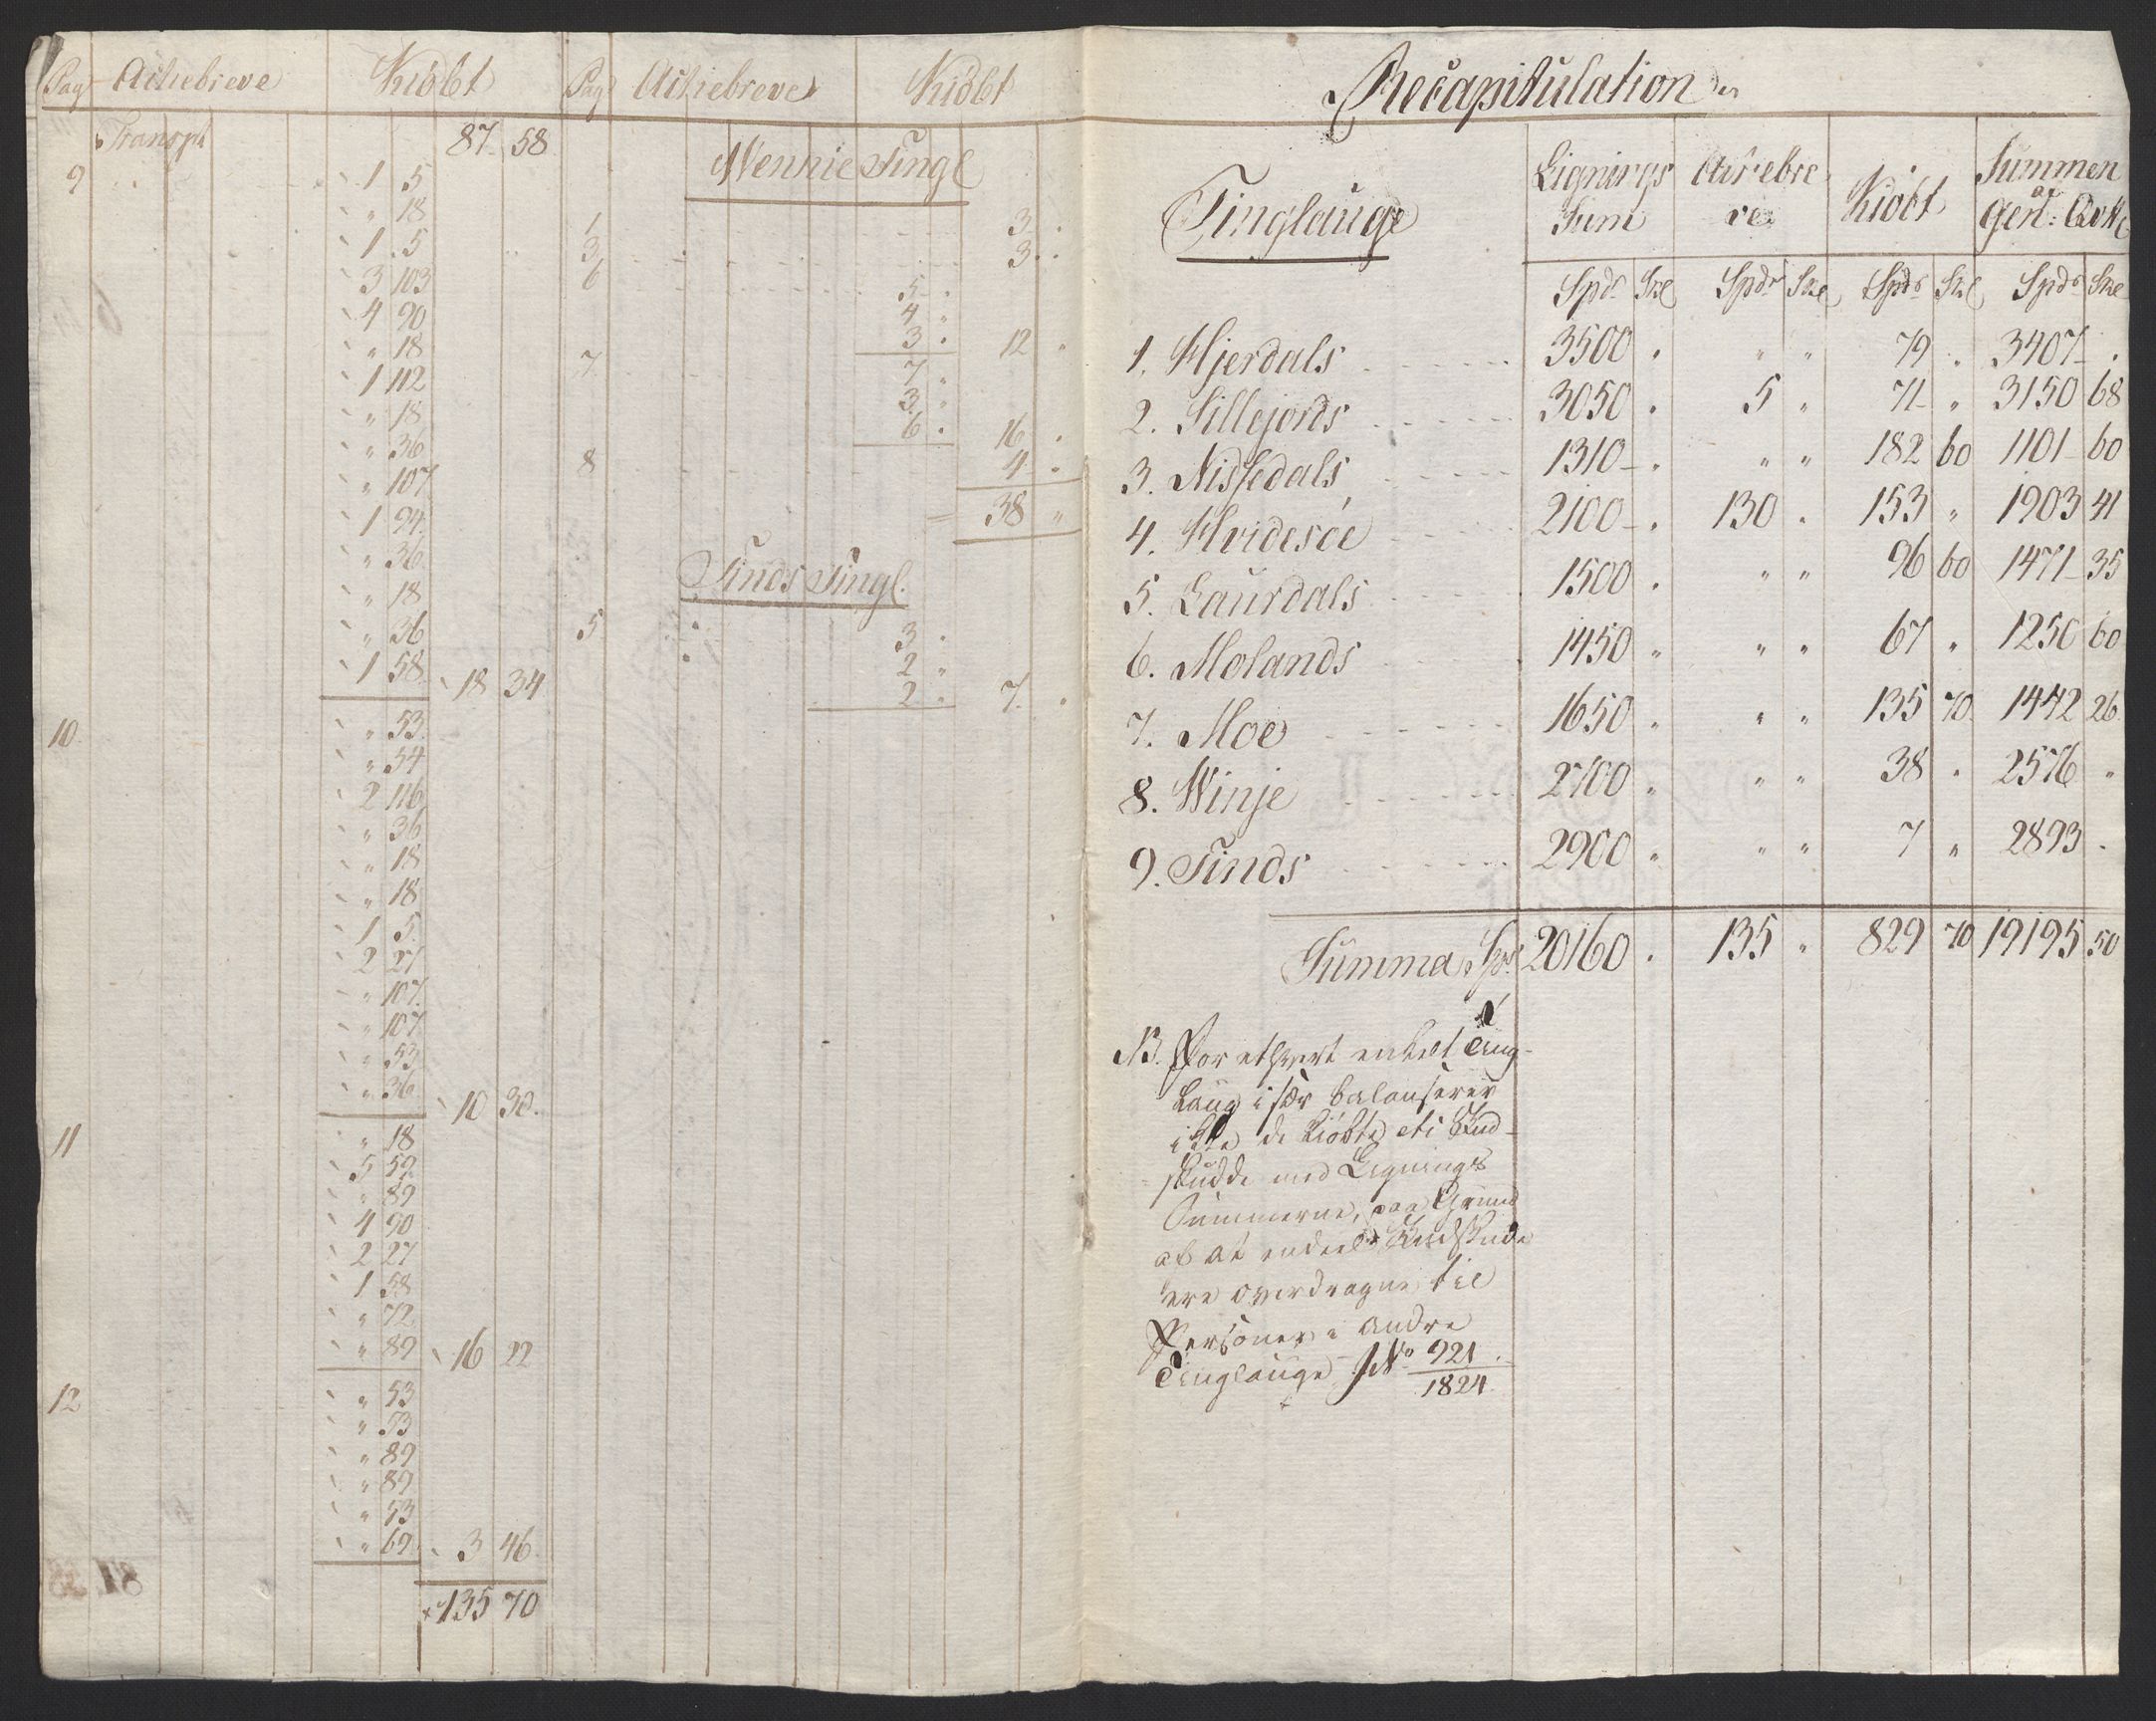 Pag Actiebreve Kiöbt
Transpt 87 58
9 " " 1 5
" 18
1 5
3 103
4 90
" 18
1 112
" 18
" 36
" 107
1 94
" 36
" 18
" 36
1 58 18 34
10 " 53
" 54
2 116
" 36
" 18
" 18
1 5
2 27
" 107
" 107
" 53
" 36 10 30
11 " 18
5 59
" 89
4 90
2 27
1 58
" 72
" 89 16 22
12 " 53
" 53
" 89
" 89
" 53
" 69 3 46
135 70
Pag Actiebreve Kiöbt
Wennie Tingl
1 3 "
3 3 "
6 5 "
4 "
3 " 12 "
7 7 "
3 "
6 " 16 "
8 4 "
38 "
Tinds Tingl.
5 3 "
2 "
2 " 7 "
Recapitulation
Tinglauge
Lignings Sum
Actiebreve
Kiöbt
Summen af Gen: Qvitt
Spdr Skl Spdr Skl Spdr Skl Spdr Skl
1. Hjerdals 3500 " " " 79 " 3407 "
2. Sillejords 3050 " 5 " 71 " 3150 68
3. Nissedals 1310 " " " 182 60 1101 60
4. Hvidesöe 2100 " 130 " 153 " 1903 41
5. Laurdals 1500 " " " 96 60 1471 35
6. Molands 1450 " " " 67 " 1250 60
7. Moe 1650 " " " 135 70 1442 26
8. Winje 2700 " " " 38 " 2576 "
9. Tinds 2900 " " " 7 " 2893 "
Summa Spd 20160 " 135 " 829 70 19195 50
NB. For ethvert enkelt Ting-
Laug især balanserer
ikke de kiöbte eti Ind-
skudde med Lignings
Summerne, paa Grund
af at endeel Indskude
ere overdragne til
Personer i andre
Tinglauge JNo 921
1824